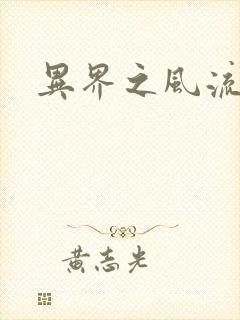 異界之風流
黄志光